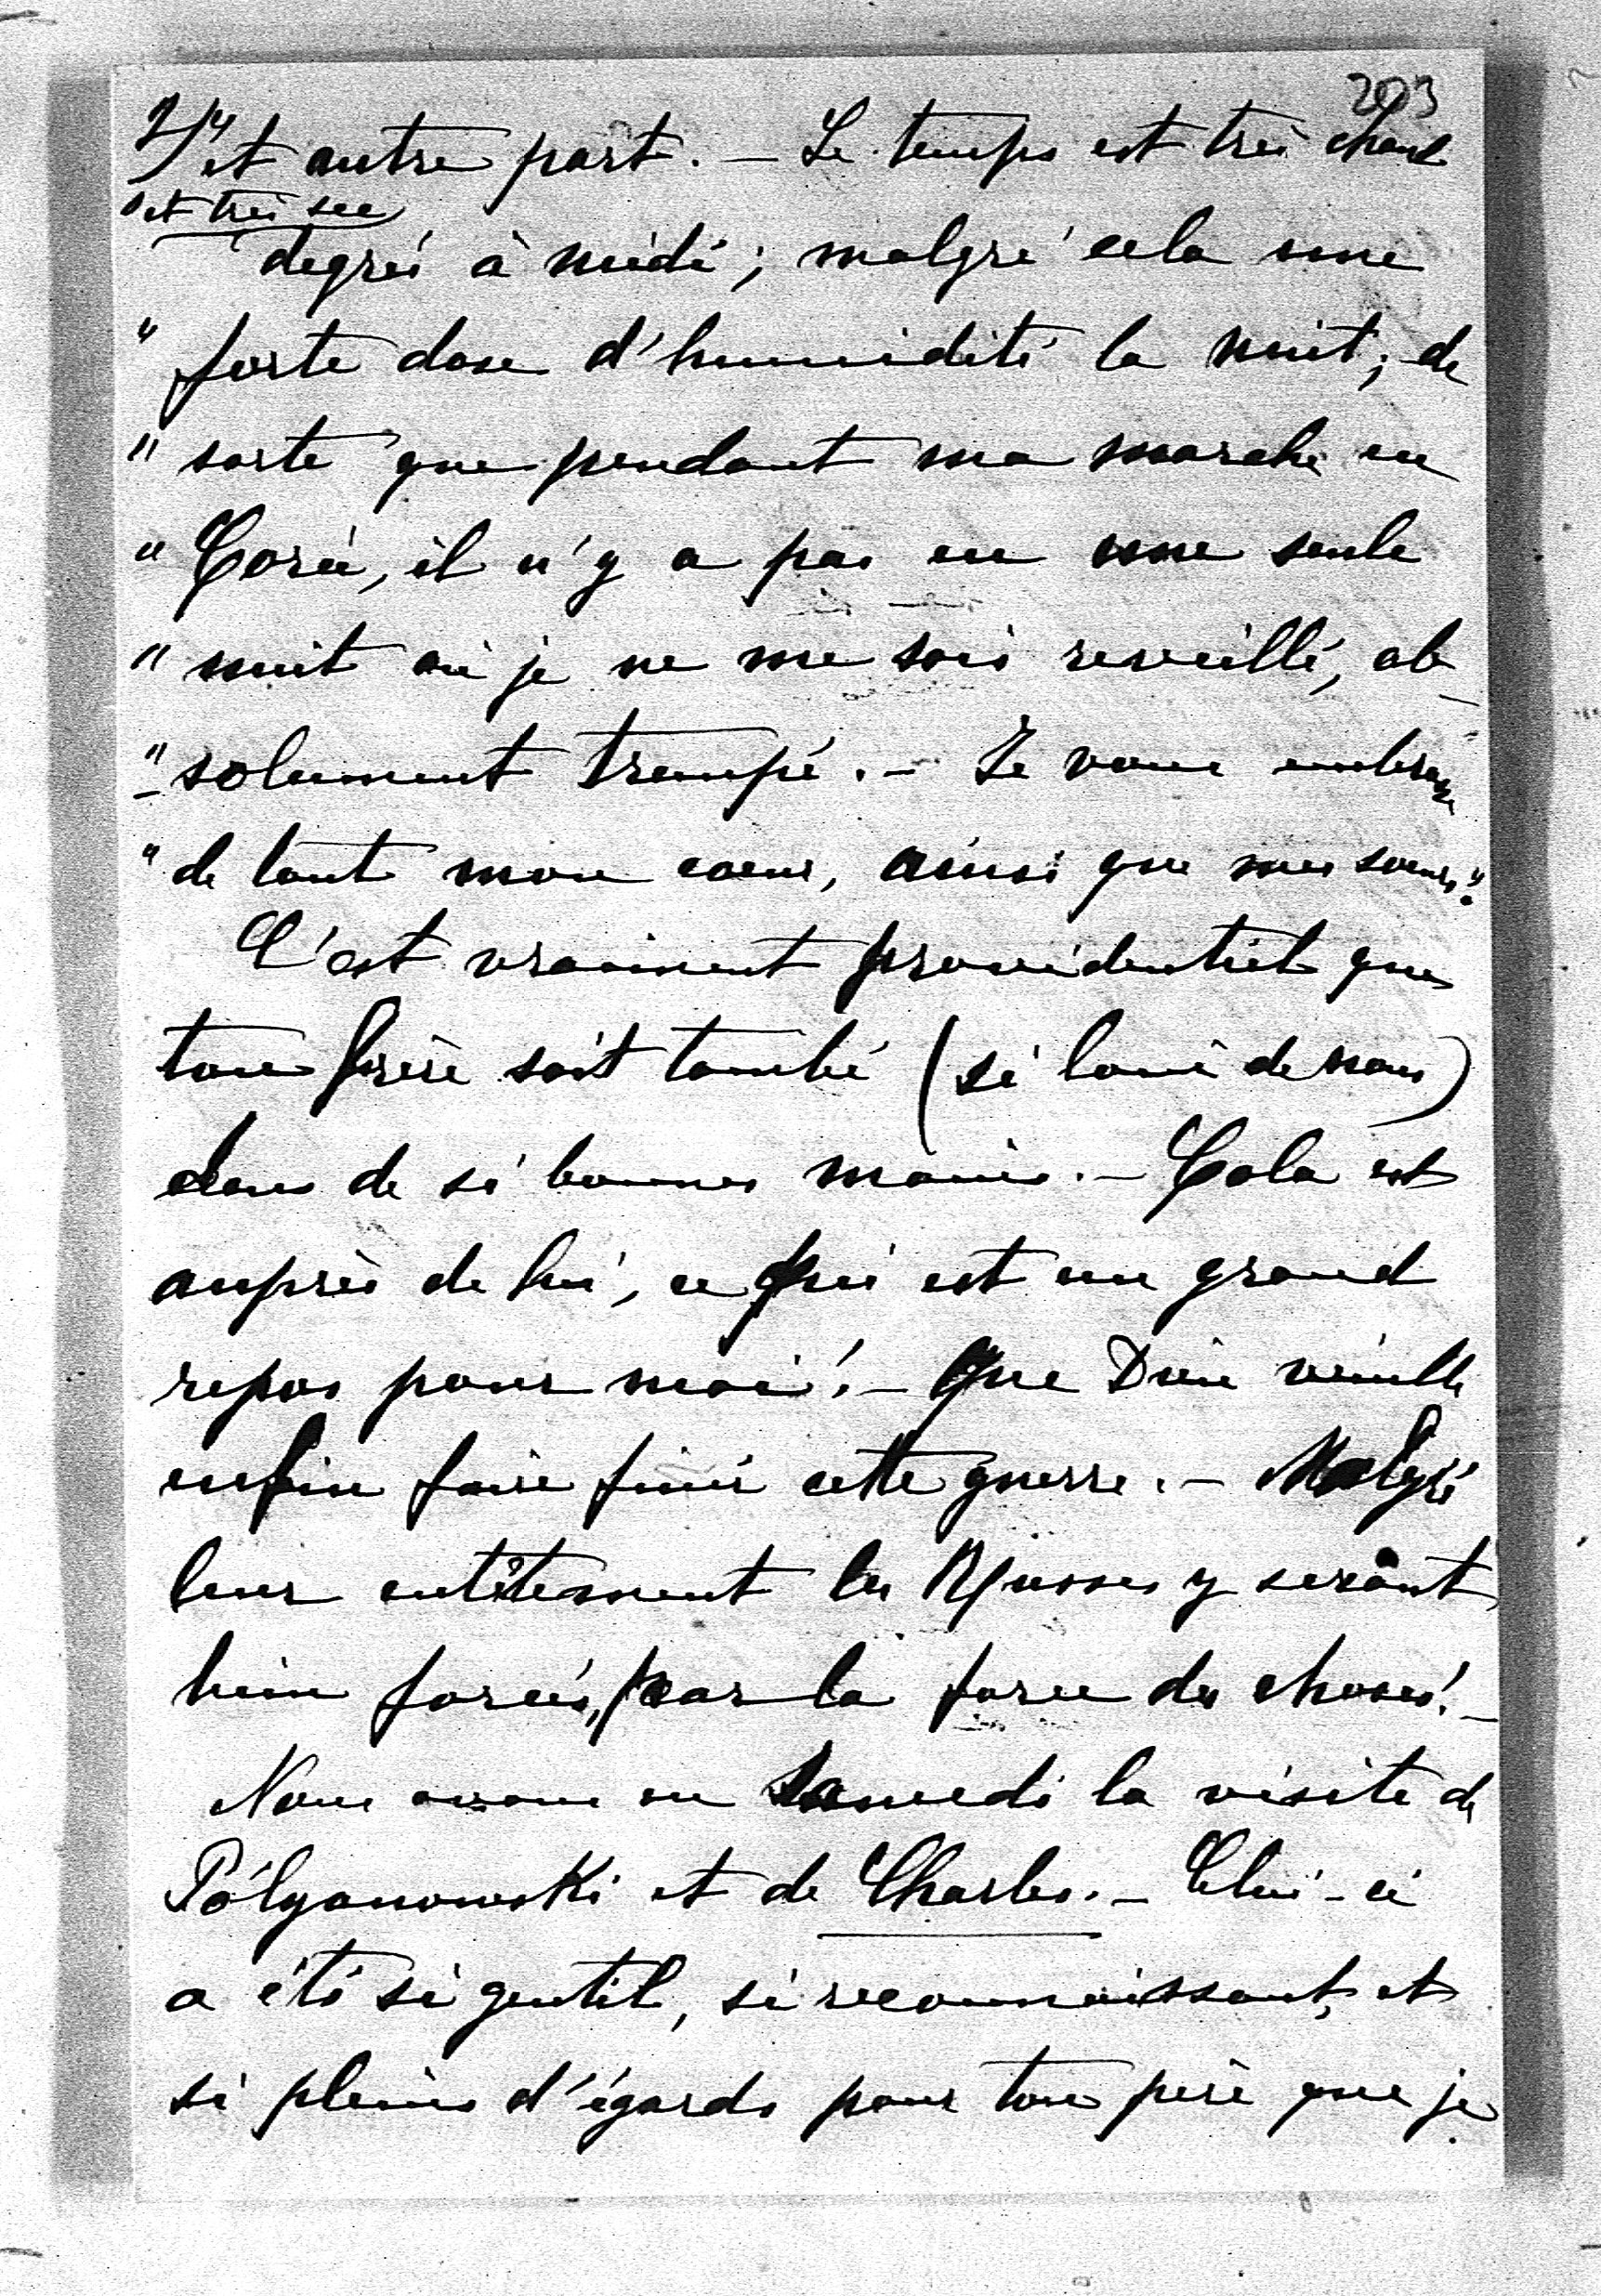 203
2/" et autre part. — Le temps est très chaud
et très sec
degrés à midi; malgré cela une
" forte dose d'humidité la nuit; de
" sorte que pendant ma marche en
" Corée, il n'y a pas eu une seule
" nuit où je ne me sois reveillé, ab-
" solument trempé. — Je vous embrasse
" de tout mon coeur, ainsi que mes soeurs."
C'est vraiment providentiel que
ton frère soit tombé (si loin de nous)
dans de si bonnes mains. — Cola est
auprès de lui, ce qui est un grand
repos pour moi! — Que Dieu veuille
enfin faire finir cette guerre. — Malgré
leur entêtement les Russes y seront
bien forcés, par la force des choses! —
Nous avons eu Samedi la visite de
Pólganowski et de Charles. — Celui-ci
a été si gentil, si reconnaissant, et
si pleins d'égards pour ton père que je